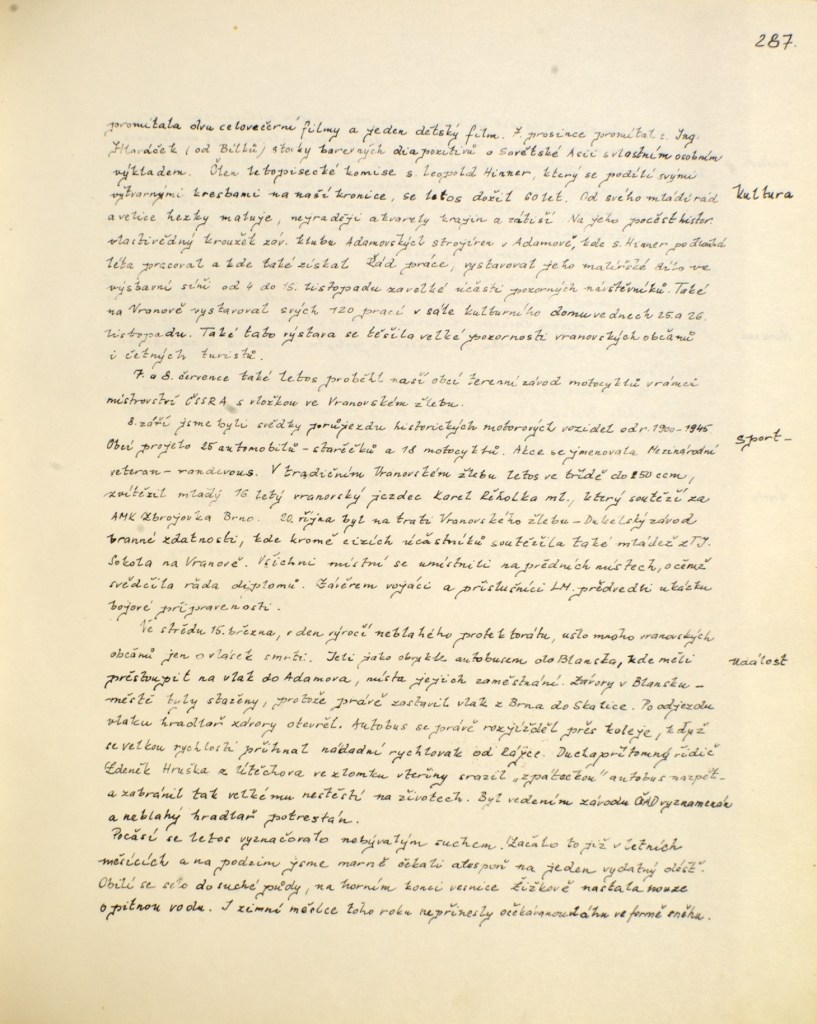 287.
promítala dva celovečerní filmy a jeden dětský film. 7. prosince promítal s. Ing.
(od Bílků) stovky barevných diapozitivů o Sovětské Asii s vlastním osobním
výkladem. Člen letopisecké komise s. Leopold Hinner, který se podílí svými
výtvarnými kresbami na naší kronice, se letos dožil 60 let. Od svého mládí rád
Kultura
a velice hezky maluje, nejraději akvarely krajin a zátiší. Na jeho počest histor.
vlastivědný kroužek záv. klubu Adamovských strojíren v Adamově, kde s. Hinner po dlouhá
léta pracoval a kde také získal Řád práce, vystavoval jeho malířské dílo ve
výstavní síni od 4 do 15. listopadu za velké účasti pozorných návštěvníků. Také
na Vranově vystavoval svých 120 prací v sále kulturního domu ve dnech 25. a 26.
listopadu. Také tato výstava se těšila velké pozornosti vranovských občanů
i četných turistů.
7. a 8. července také letos proběhl naší obcí terenní závod motocyklů v rámci
mistrovství ČSSR s vložkou ve Vranovském žlebu.
8. září jsme byli svědky průjezdu historických motorových vozidel od r. 1900-1945
Sport-
Obcí projelo 25 automobilů - starečků a 18 motocyklů. Akce se jmenovala Mezinárodní
veteran - randevous. V tradičním Vranovském žlebu letos ve třídě do 250 ccm,
zvítězil mladý 16 letý vranovský jezdec Karel Řiholka ml., který soutěží za
AMK Zbrojovka Brno. 20. října byl na trati Vranovského žlebu - Dukelský závod
branné zdatnosti, kde kromě cizích účastníků soutěžila také mládež z TJ.
Sokola na Vranově. Všichni místní se umístnili na předních místech, o čemž
svědčila řada diplomů. Závěrem vojáci a příslušníci LM. předvedli ukázku
bojové připravenosti.
Ve středu 15. března, v den výročí neblahého protektorátu, ušlo mnoho vranovských
občanů jen o vlásek smrti. Jeli jako obvykle autobusem do Blanska, kde měli
událost
přestoupit na vlak do Adamova, místa jejich zaměstnání. Závory v Blansku -
městě byly staženy, protože právě zastavil vlak z Brna do Skalice. Po odjezdu
vlaku hradlař závory otevřel. Autobus se právě rozjížděl přes koleje, když
se velkou rychlostí přihnal nákladní rychlovlak od Rájce. Duchapřítomný řidič
Zdeněk Hruška z Útěchova ve zlomku vteřiny srazil „zpátečkou" autobus nazpět -
a zabránil tak velkému neštěstí na životech. Byl vedením závodu ČSAD vyznamenán
a neblahý hradlař potrestán.
Počasí se letos vyznačovalo nebývalým suchem. Začalo to již v letních
měsících a na podzim jsme marně čekali alespoň na jeden vydatný déšť.
Obilí se selo do suché půdy, na horním konci vesnice Žižkově nastala nouze
o pitnou vodu. I zimní měsíce toho roku nepřinesly očekávanou vláhu ve formě sněhu.